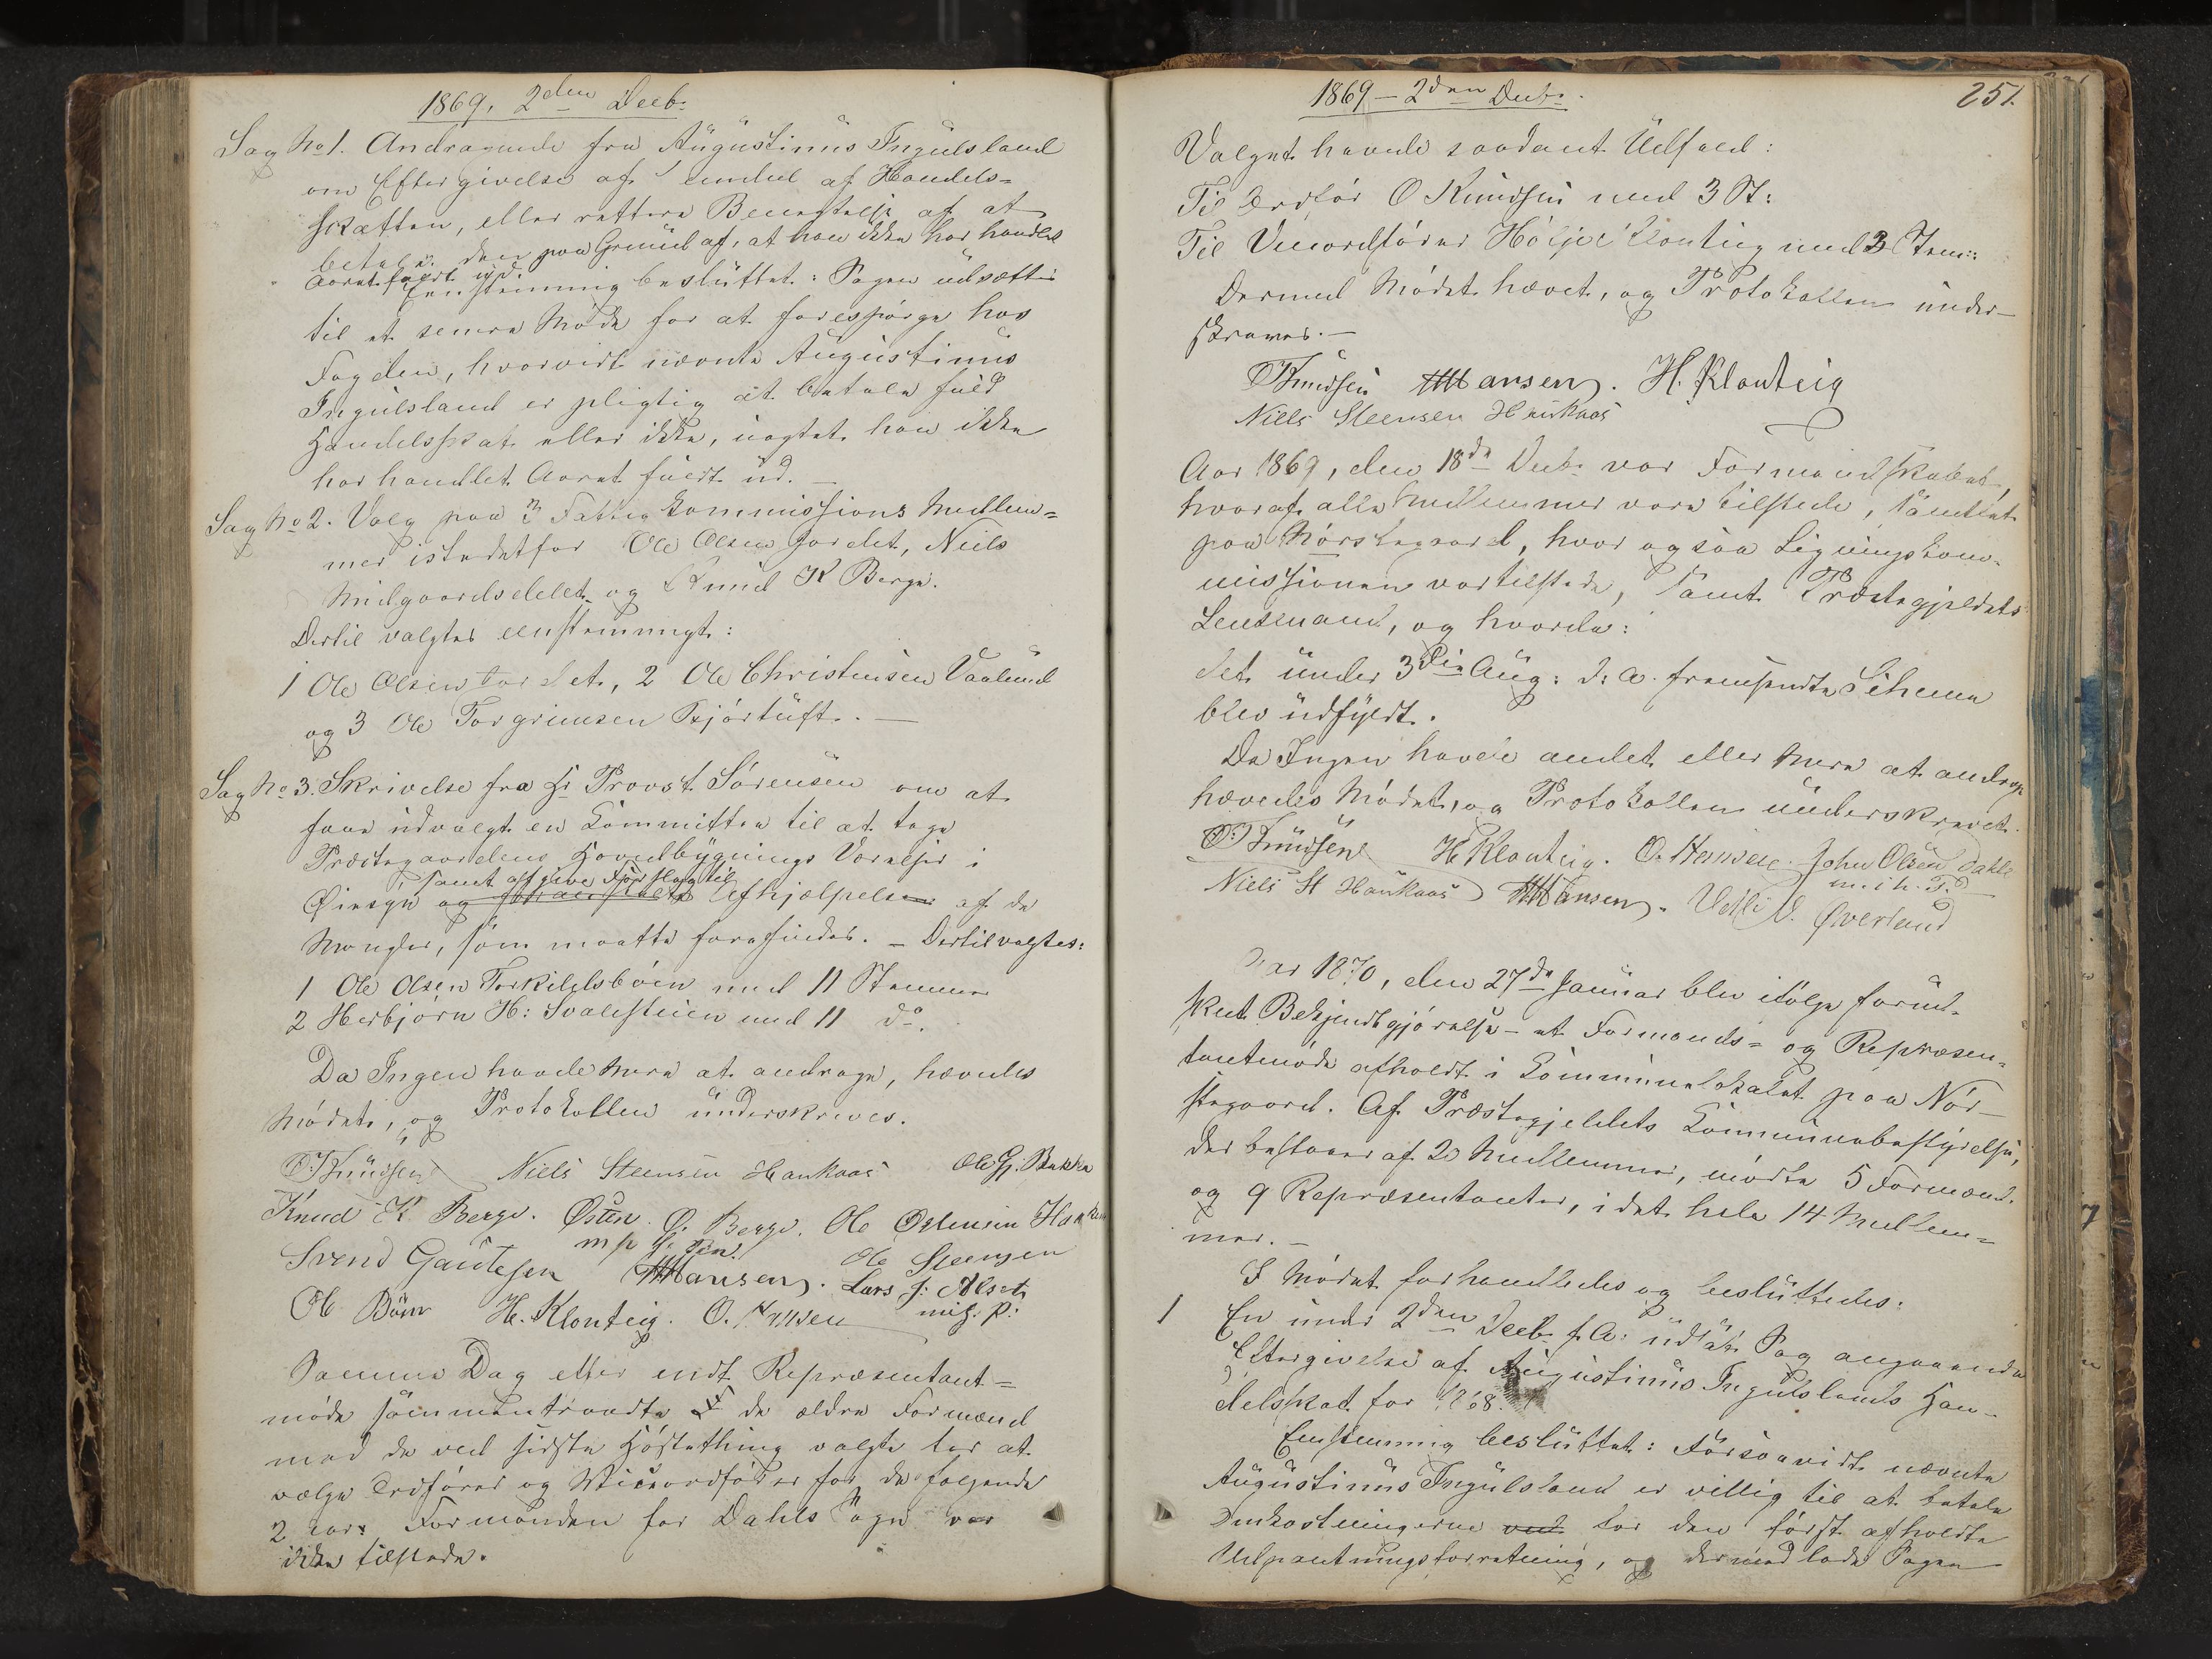 1869, 2den Decb:
Sag No 1. Andragende fra Augustinus Ingulsland
om Eftergivelse af endeel af Handels=
skatten, eller rettere Benegtelse af at
betale den paa Grund af, at han ikke har handlet
Aaret fuldt ud.
Eenstemmig besluttet: Sagen udsættes
til et senere Møde for at forespørge hos
Fogden, hvorvidt nævnte Augustinus
Ingulsland er pligtig at betale fuld
Handelsskat eller ikke, uagtet han ikke
har handlet Aaret fuldt ud. —
Sag No 2. Valg paa 3 Fattigkommissions Medlem=
mer istedetfor Ole Olsen Jordet, Niels
Midgaardsdelet og Knud K Berge.
Dertil valgtes eenstemmigt:
1 Ole Olsen Jordet, 2 Ole Christensen Vaalund
og 3 Ole Torgrimsen Kjørtuft. —
Sag No 3. Skrivelse fra Hr Provst Sørensen om at
faae udvalgt en Committee til at tage
Præstegaardens Hovedbygnings Værelser i
samt afgive Forslag til
Øiesyn og Afhjælpelse af de
Mangler, som maatte forefindes. — Dertil valgtes:
1 Ole Olsen Torkildsbøen med 11 Stemmer
2 Herbjørn H: Svalestuen med 11 do.
Da Ingen havde mere at andrage, hævedes
Mødet, og Protokollen underskreves.
O Knudsen Niels Steensen Haukaas Ole Gj. Bakka
Knud K Berge. Østen Ø. Berge. Ole Østensen Haukaas
m p Pen.
Svend Gautesen HHansen. Ole Steensen
Lars J:
Ole Bøen H. Klonteig. O. Hansen m i h. P:
Samme Dag efter endt Repræsentant=
møde sammentraadte 4 de ældre Formænd
med de ved sidste Høstething valgte for at
vælge Ordfører og Viceordfører for de følgende
2 Aar. Formanden for Dahls Sogn var
ikke tilstede.
251.
1869 — 2den Decb:
Valget havde saadant Udfald:
Til Ordfør O Knudsen med 3 St:
Til Viceordfører Høljer Klonteig med 3 Stem:
Dermed Mødet hævet, og Protokollen under-
skreves. —
OKnudsen HHansen. H. Klonteig
Niels Steensen Haukaas
Aar 1869, den 18de Decb: var Formandskabet,
hvoraf alle Medlemmer vare tilstede, samlet
paa Nørstegaard, hvor ogsaa Ligningskom-
missionen var tilstede, samt Præstegjeldets
Lensmand, og hvorda:
det under 3die Aug: d. A. fremsendte Schema
blev udfyldt.
Da Ingen havde andet eller mere at andrage
hævedes Mødet, og Protokollen underskrevet.
O Knudsen H Klonteig. O. Hansen. John Olsen Dahle
m. i h. P.
Niels St Haukaas HHansen. Øverland
Aar 1870, den 27de Januar blev ifølge forud-
skeet Bekjendtgjørelse — et Formands= og Repræsen-
tantmøde afholdt i Communelokalet paa Nør-
stegaard. Af Præstegjeldets Communebestyrelse,
der bestaaer af 20 Medlemmer, mødte 5 Formænd
og 9 Repræsentanter, i det hele 14 Medlem=
mer. —
I Mødet forhandledes og besluttedes:
1 En under 2den Decb. f. A: udsat Sag angaaende
Eftergivelse af Augustinus Ingulslands Han-
delsskat for 1868.
Eenstemmig besluttet: Forsaavidt nævnte
Augustinus Ingulsland er villig til at betale
Omkostningerne ved for den først afholdte
Udpantningsforretning, og dermed lade Sagen